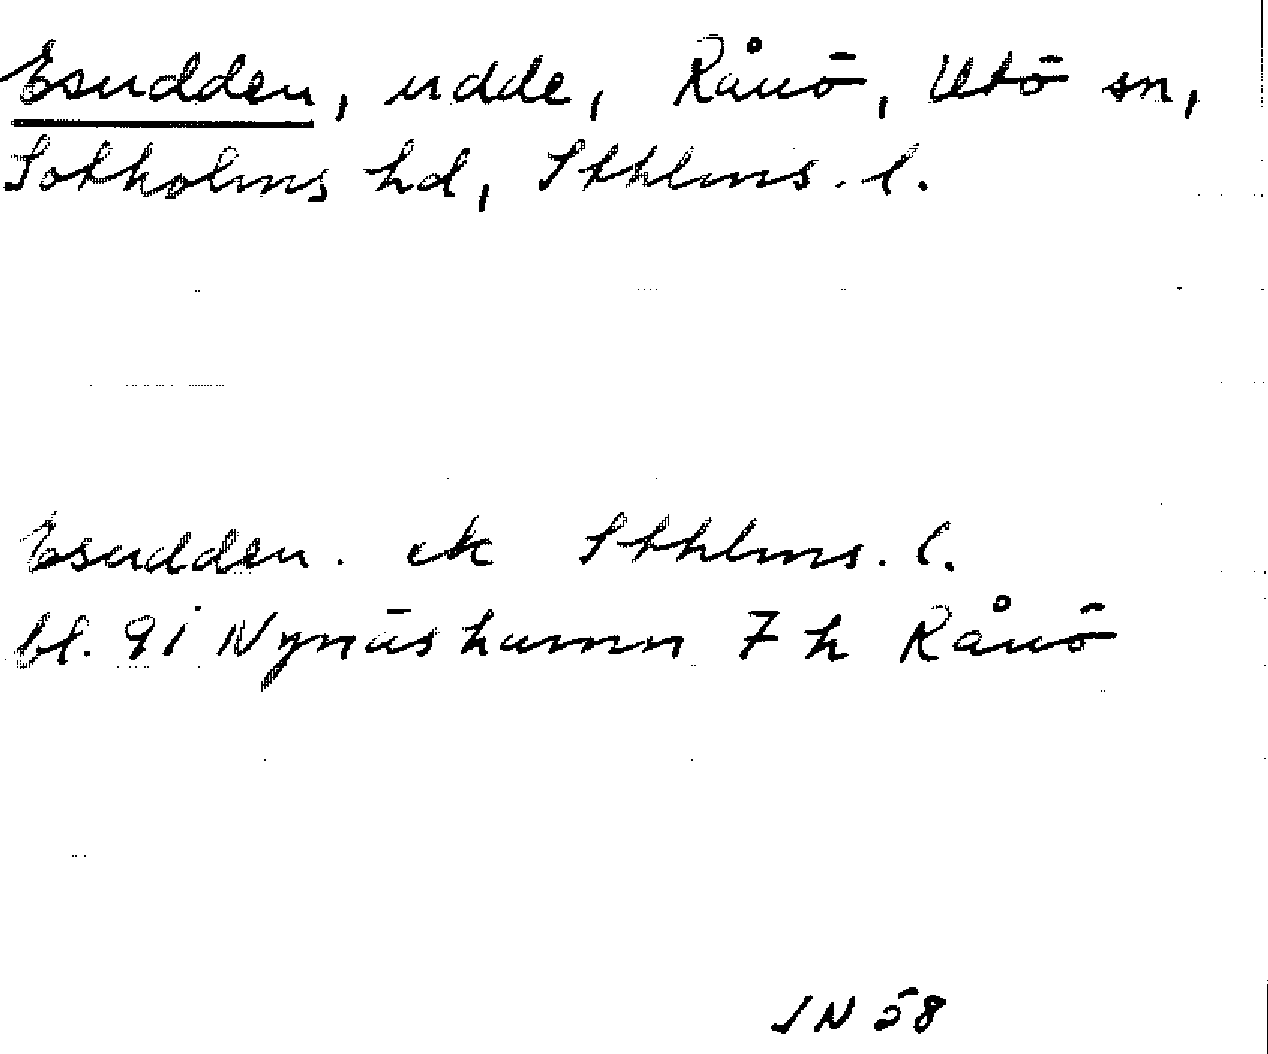 Esudden, udde, Rånö, Utö sn,
Sotholms hd, Sthlms. l.
Esudden. ek Sthlms. l.
bl. 91 Nynäshamn 7 h Rånö
JN 58